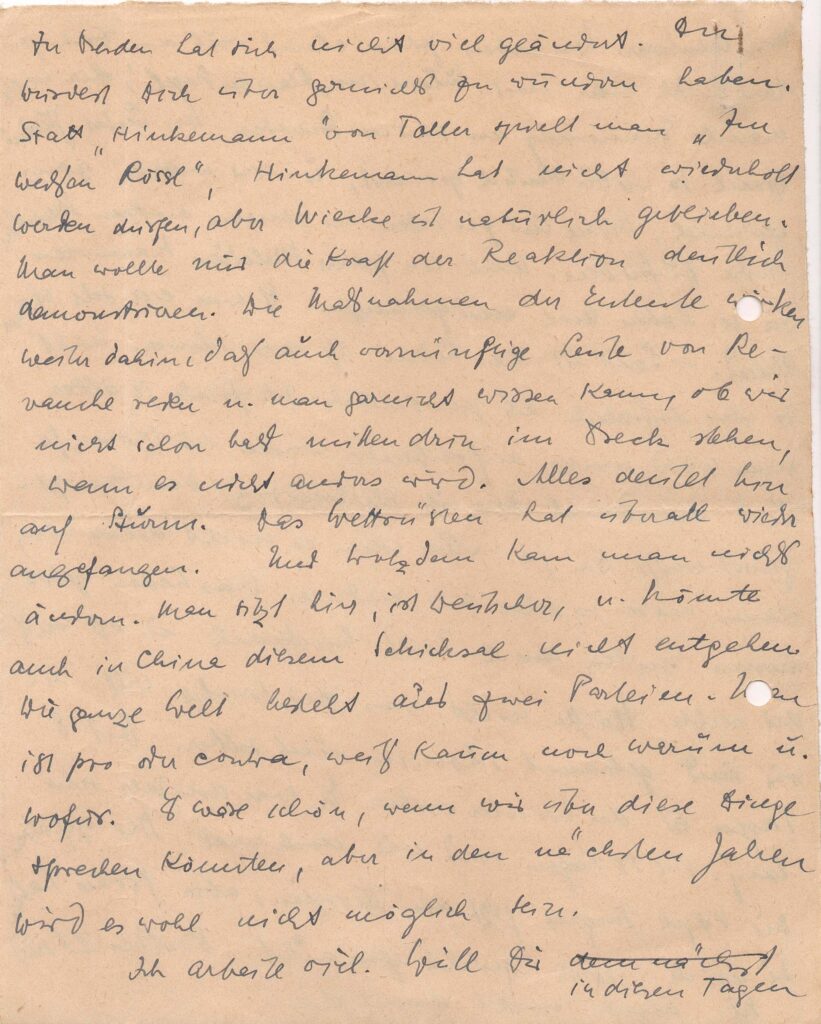 In Dresden hat sich nicht viel geändert. Du
würdest Dich über garnichts zu wundern haben.
Statt „Hinkemann" von Toller spielt man „Im
weißen Rössl", Hinkemann hat nicht wiederholt
werden dürfen, aber Wiecke ist natürlich geblieben.
Man wollte nur die Kraft der Reaktion deutlich
demonstrieren. Die Maßnahmen der Entente wirken
weiter dahin, daß auch vernünftige Leute von Re-
vanche reden u. man garnicht wissen kann, ob wir
nicht schon bald mittendrin im Dreck stehen,
wenn es nicht anders wird. Alles deutet hin
auf Sturm. Das Wettrüsten hat überall wieder
angefangen. Und trotzdem kann man nichts
ändern. Man sitzt hier, ist Deutscher, u. könnte
auch in China diesem Schicksal nicht entgehen.
Die ganze Welt besteht aus zwei Parteien. Man
ist pro oder contra, weiß kaum noch warum u.
wofür. Es wäre schön, wenn wir über diese Dinge
sprechen könnten, aber in den nächsten Jahren
wird es wohl nicht möglich sein.
Ich arbeite viel. Will Dir demnächst
in diesen Tagen